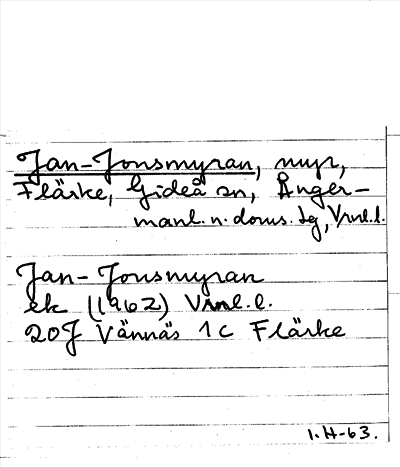 Jan-Jonsmyran, myr,
Flärke, Gideå sn, Ånger-
manl. n. doms. dg, Vrnl. l.
Jan-Jonsmyran
ek (1962) Vrnl. l.
20J Vännäs 1c Flärke
1.H-63.